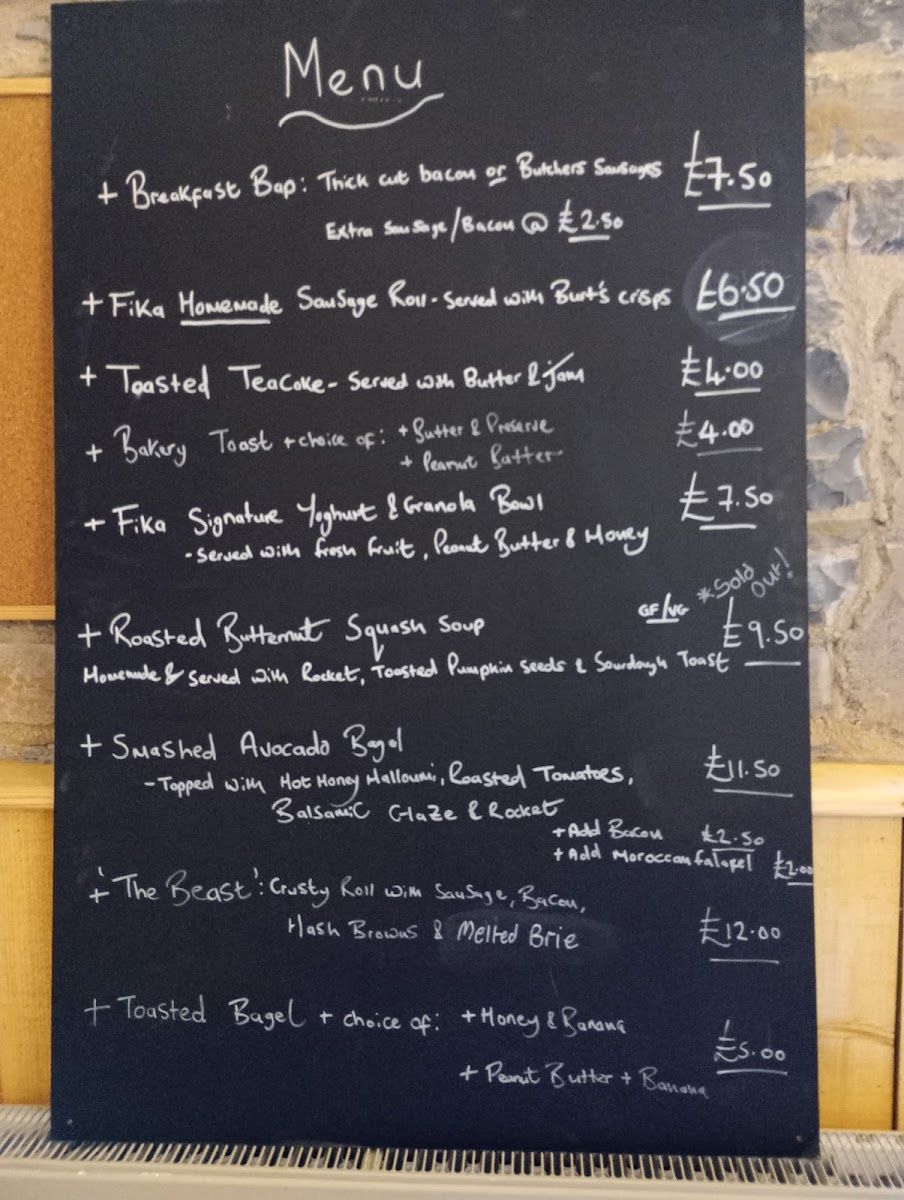 Menu
+ Breakfast Bap: Thick cut bacon or Butchers Sausages £7.50
Extra Sausage/Bacon @ £2.50
+ Fika Homemade Sausage Roll - Served with Burt's crisps £6.50
+ Toasted Teacake - Served with Butter & Jam £4.00
+ Bakery Toast + choice of: + Butter & Preserve £4.00
+ Peanut Butter
+ Fika Signature Yoghurt & Granola Bowl £7.50
- Served with fresh fruit, Peanut Butter & Honey
*Sold out!
+ Roasted Butternut Squash Soup GF/VG £9.50
Homemade & Served with Rocket, Toasted Pumpkin Seeds & Sourdough Toast
+ Smashed Avocado Bagel £11.50
- Topped with Hot Honey Halloumi, Roasted Tomatoes,
Balsamic Glaze & Rocket
+ Add Bacon £2.50
+ Add Moroccan falafel £2.00
+ 'The Beast': Crusty Roll with Sausage, Bacon,
Hash Browns & Melted Brie £12.00
+ Toasted Bagel + choice of: + Honey & Banana £5.00
+ Peanut Butter + Banana